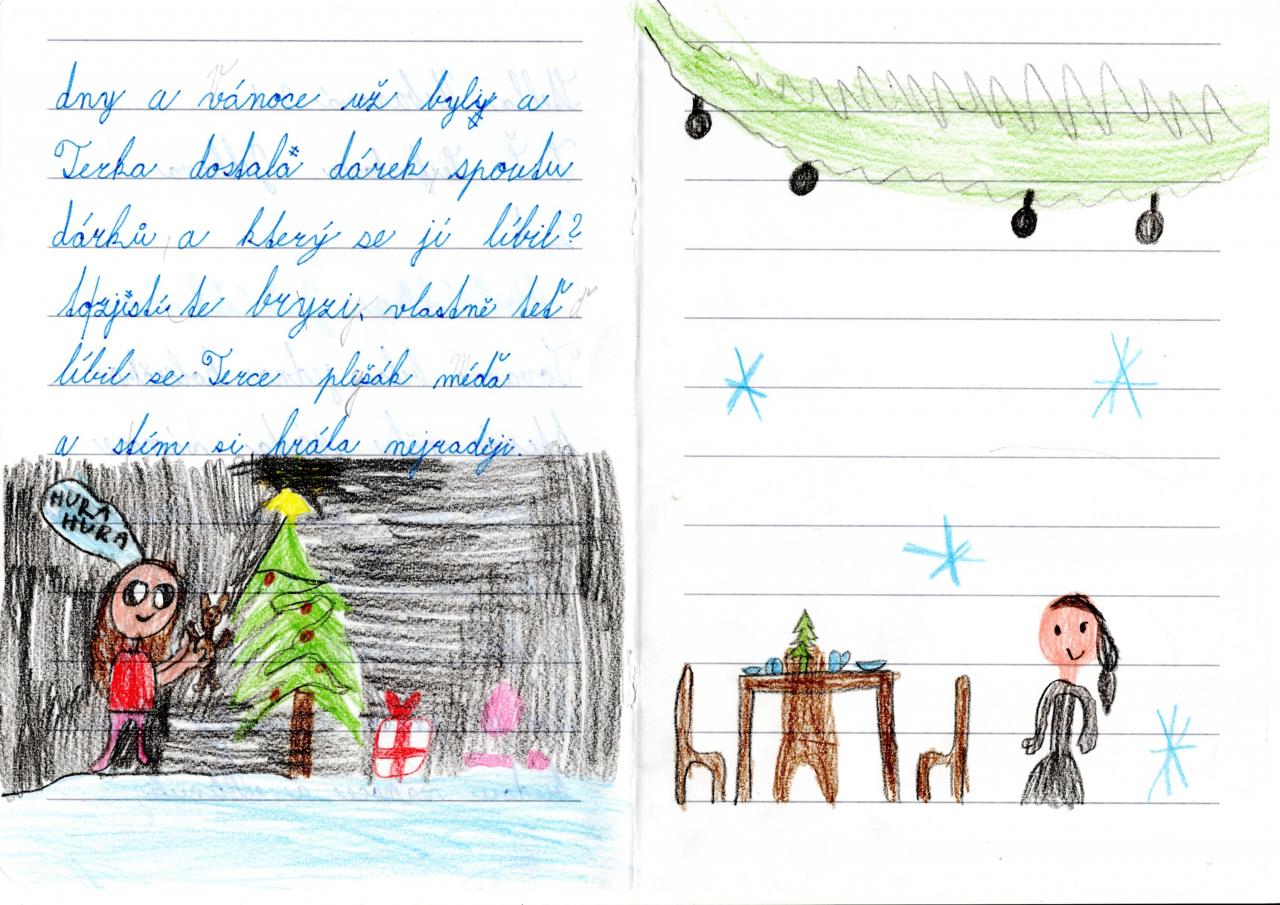 dny a vánoce už byly a
Terka dostala dárek spoutu
dárků a který se jí líbil?
to zjistíte bryzi, vlastně teť
líbil se Terce plišák méďa
a stím si hrála nejraději.
HURÁ
HURA